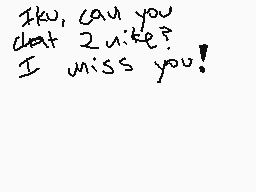 Iku, can you
chat 2 nite?
I miss you!